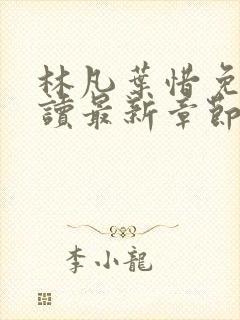 林凡葉惜免
讀最新章節
李小龍